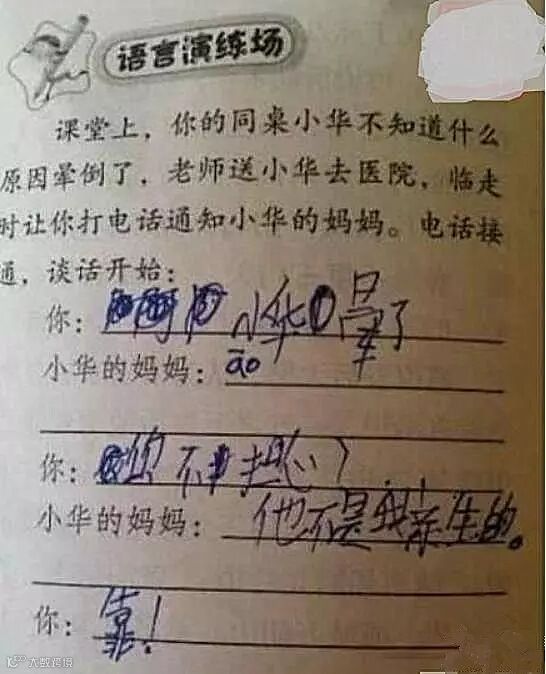 语言演练场
课堂上，你的同桌小华不知道什么
原因晕倒了，老师送小华去医院，临走
时让你打电话通知小华的妈妈。电话接
通，谈话开始：
你：小华晕了
小华的妈妈：āo
你：你不担心？
小华的妈妈：他不是我亲生的。
你：靠！
大数跨境